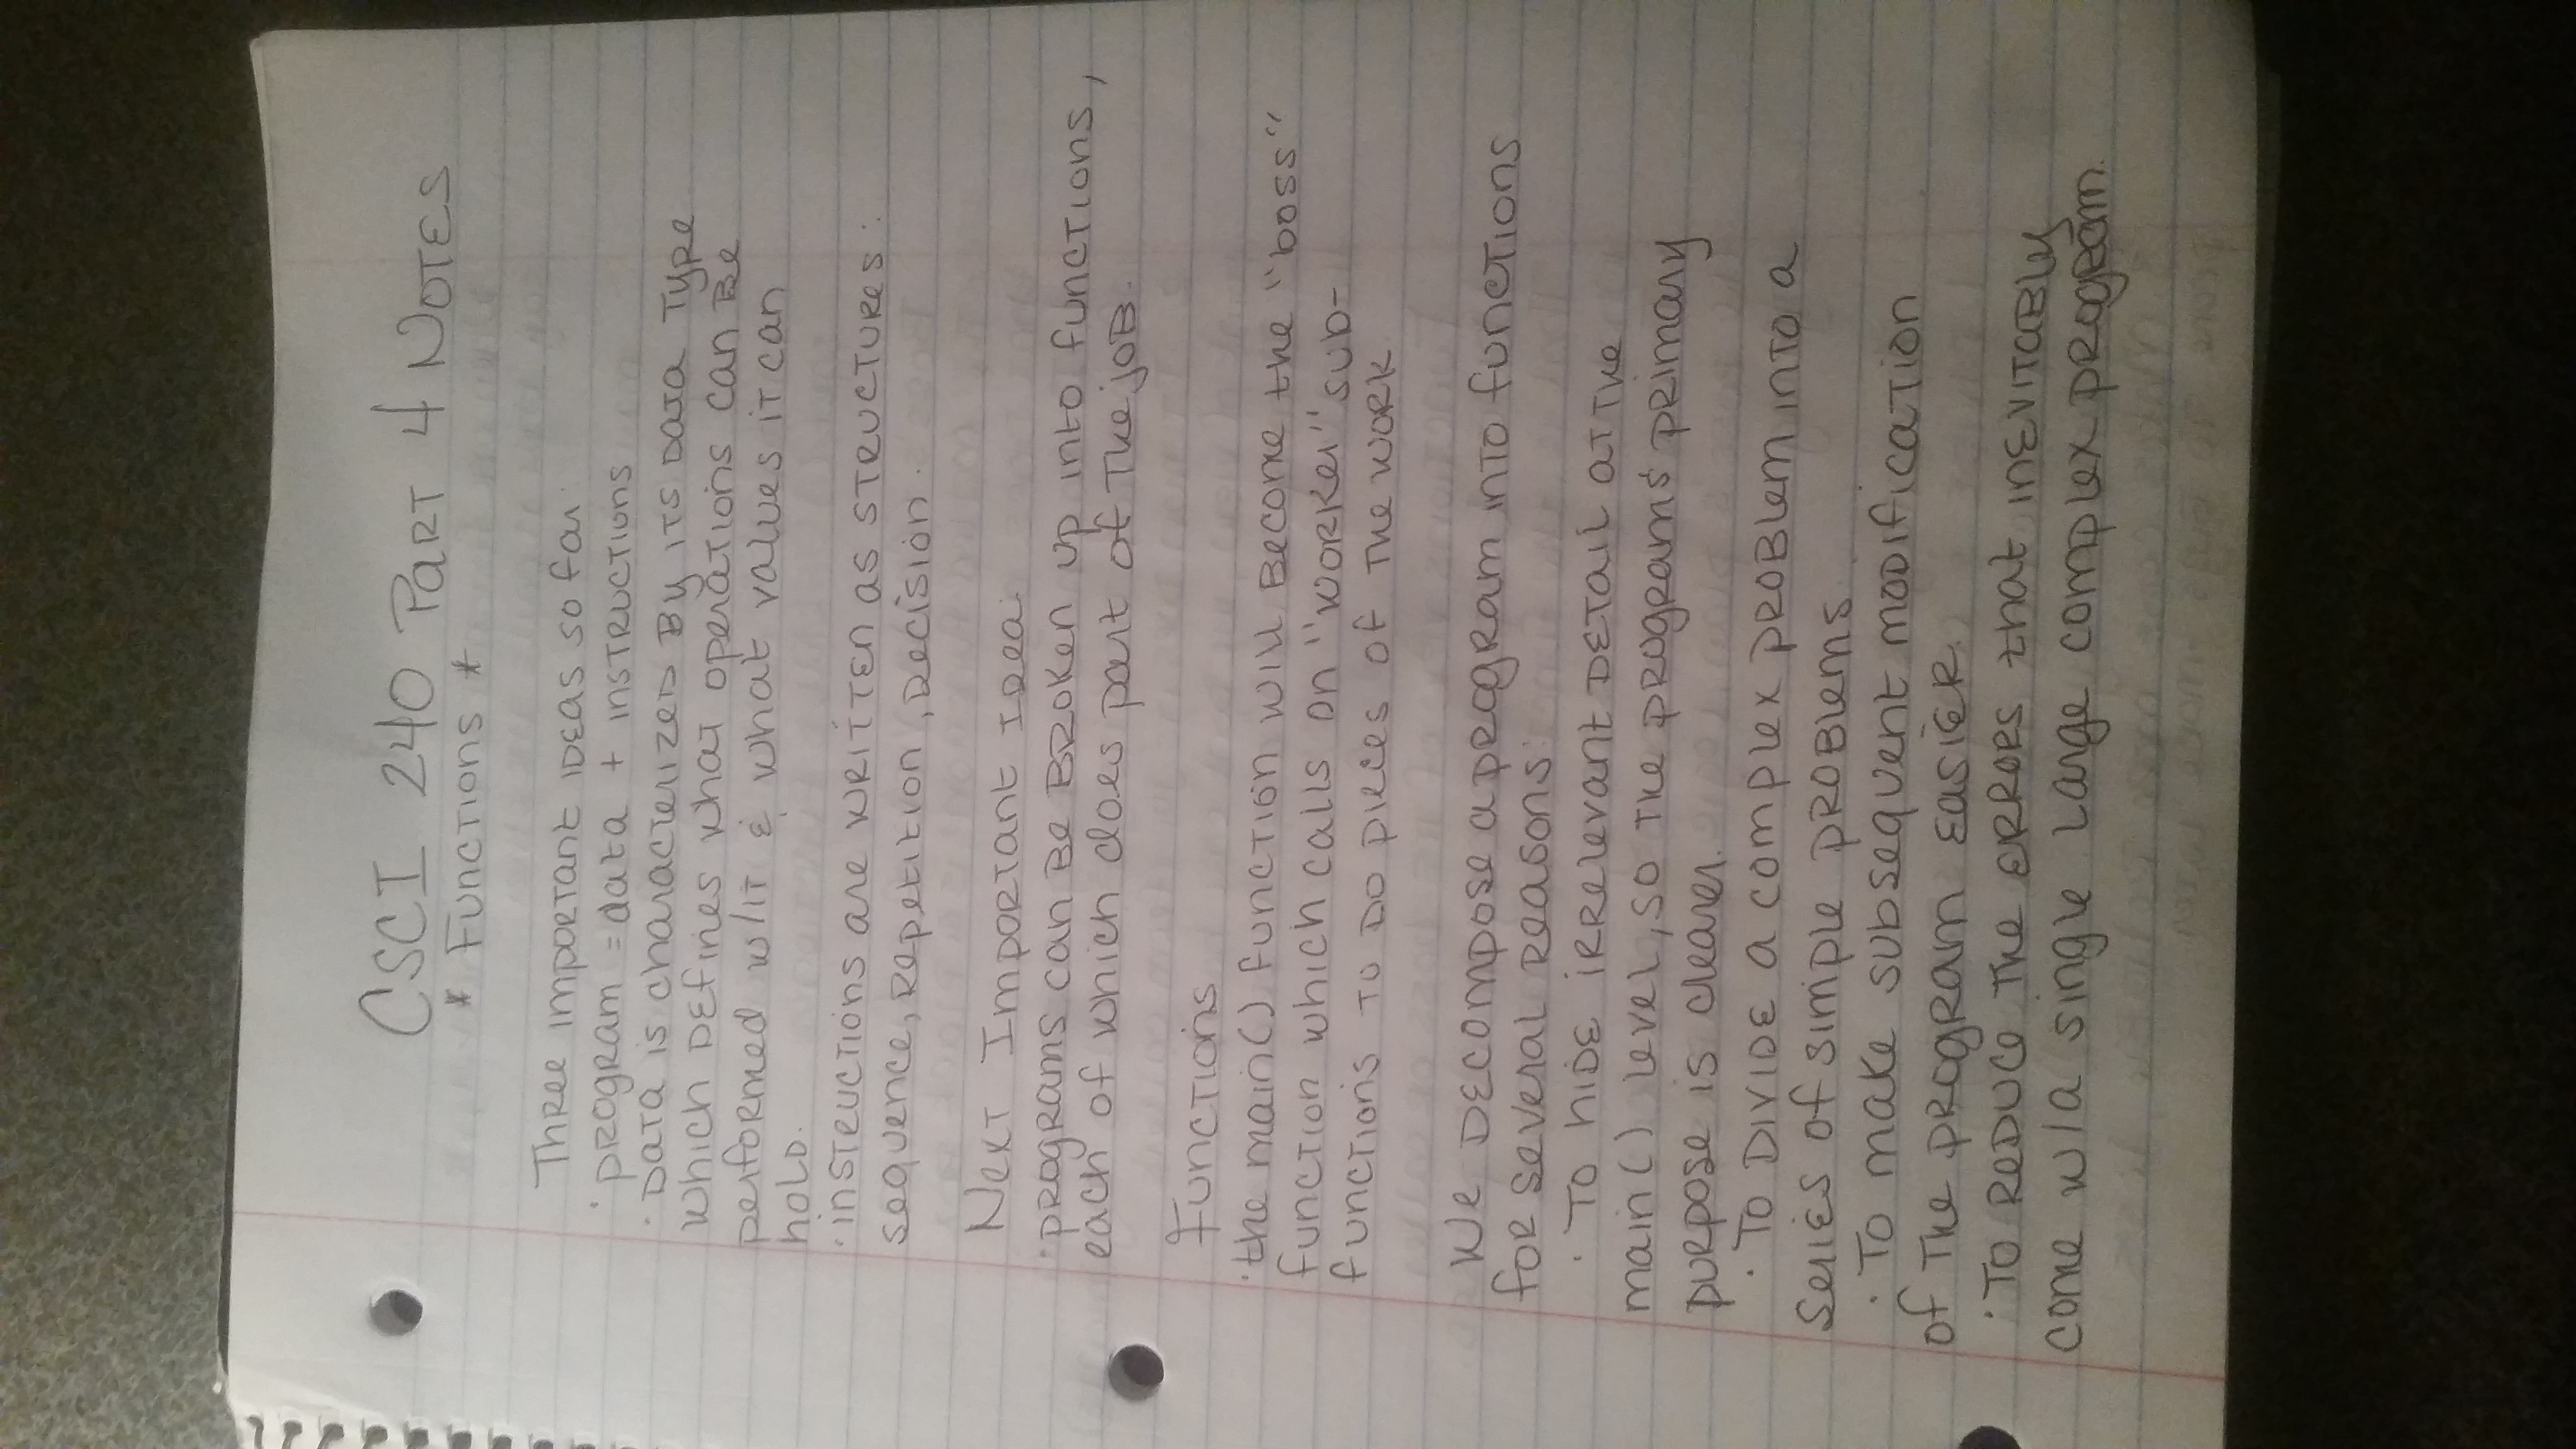 CSCI 240 Part 4 Notes
* Functions *
Three important ideas so far:
· program = data + instructions
· Data is characterized by its data type
which defines what operations can be
performed w/it & what values it can
hold.
· instructions are written as structures:
sequence, repetition, decision.
Next Important Idea:
· programs can be broken up into functions,
each of which does part of the job.
Functions
· the main() function will become the "boss"
function which calls on "worker" sub-
functions to do pieces of the work
We decompose a program into functions
for several reasons:
· To hide irrelevant detail at the
main() level, so the program's primary
purpose is clearer.
· To divide a complex problem into a
series of simple problems.
· To make subsequent modification
of the program easier.
· To reduce the errors that inevitably
come w/a single large complex program.